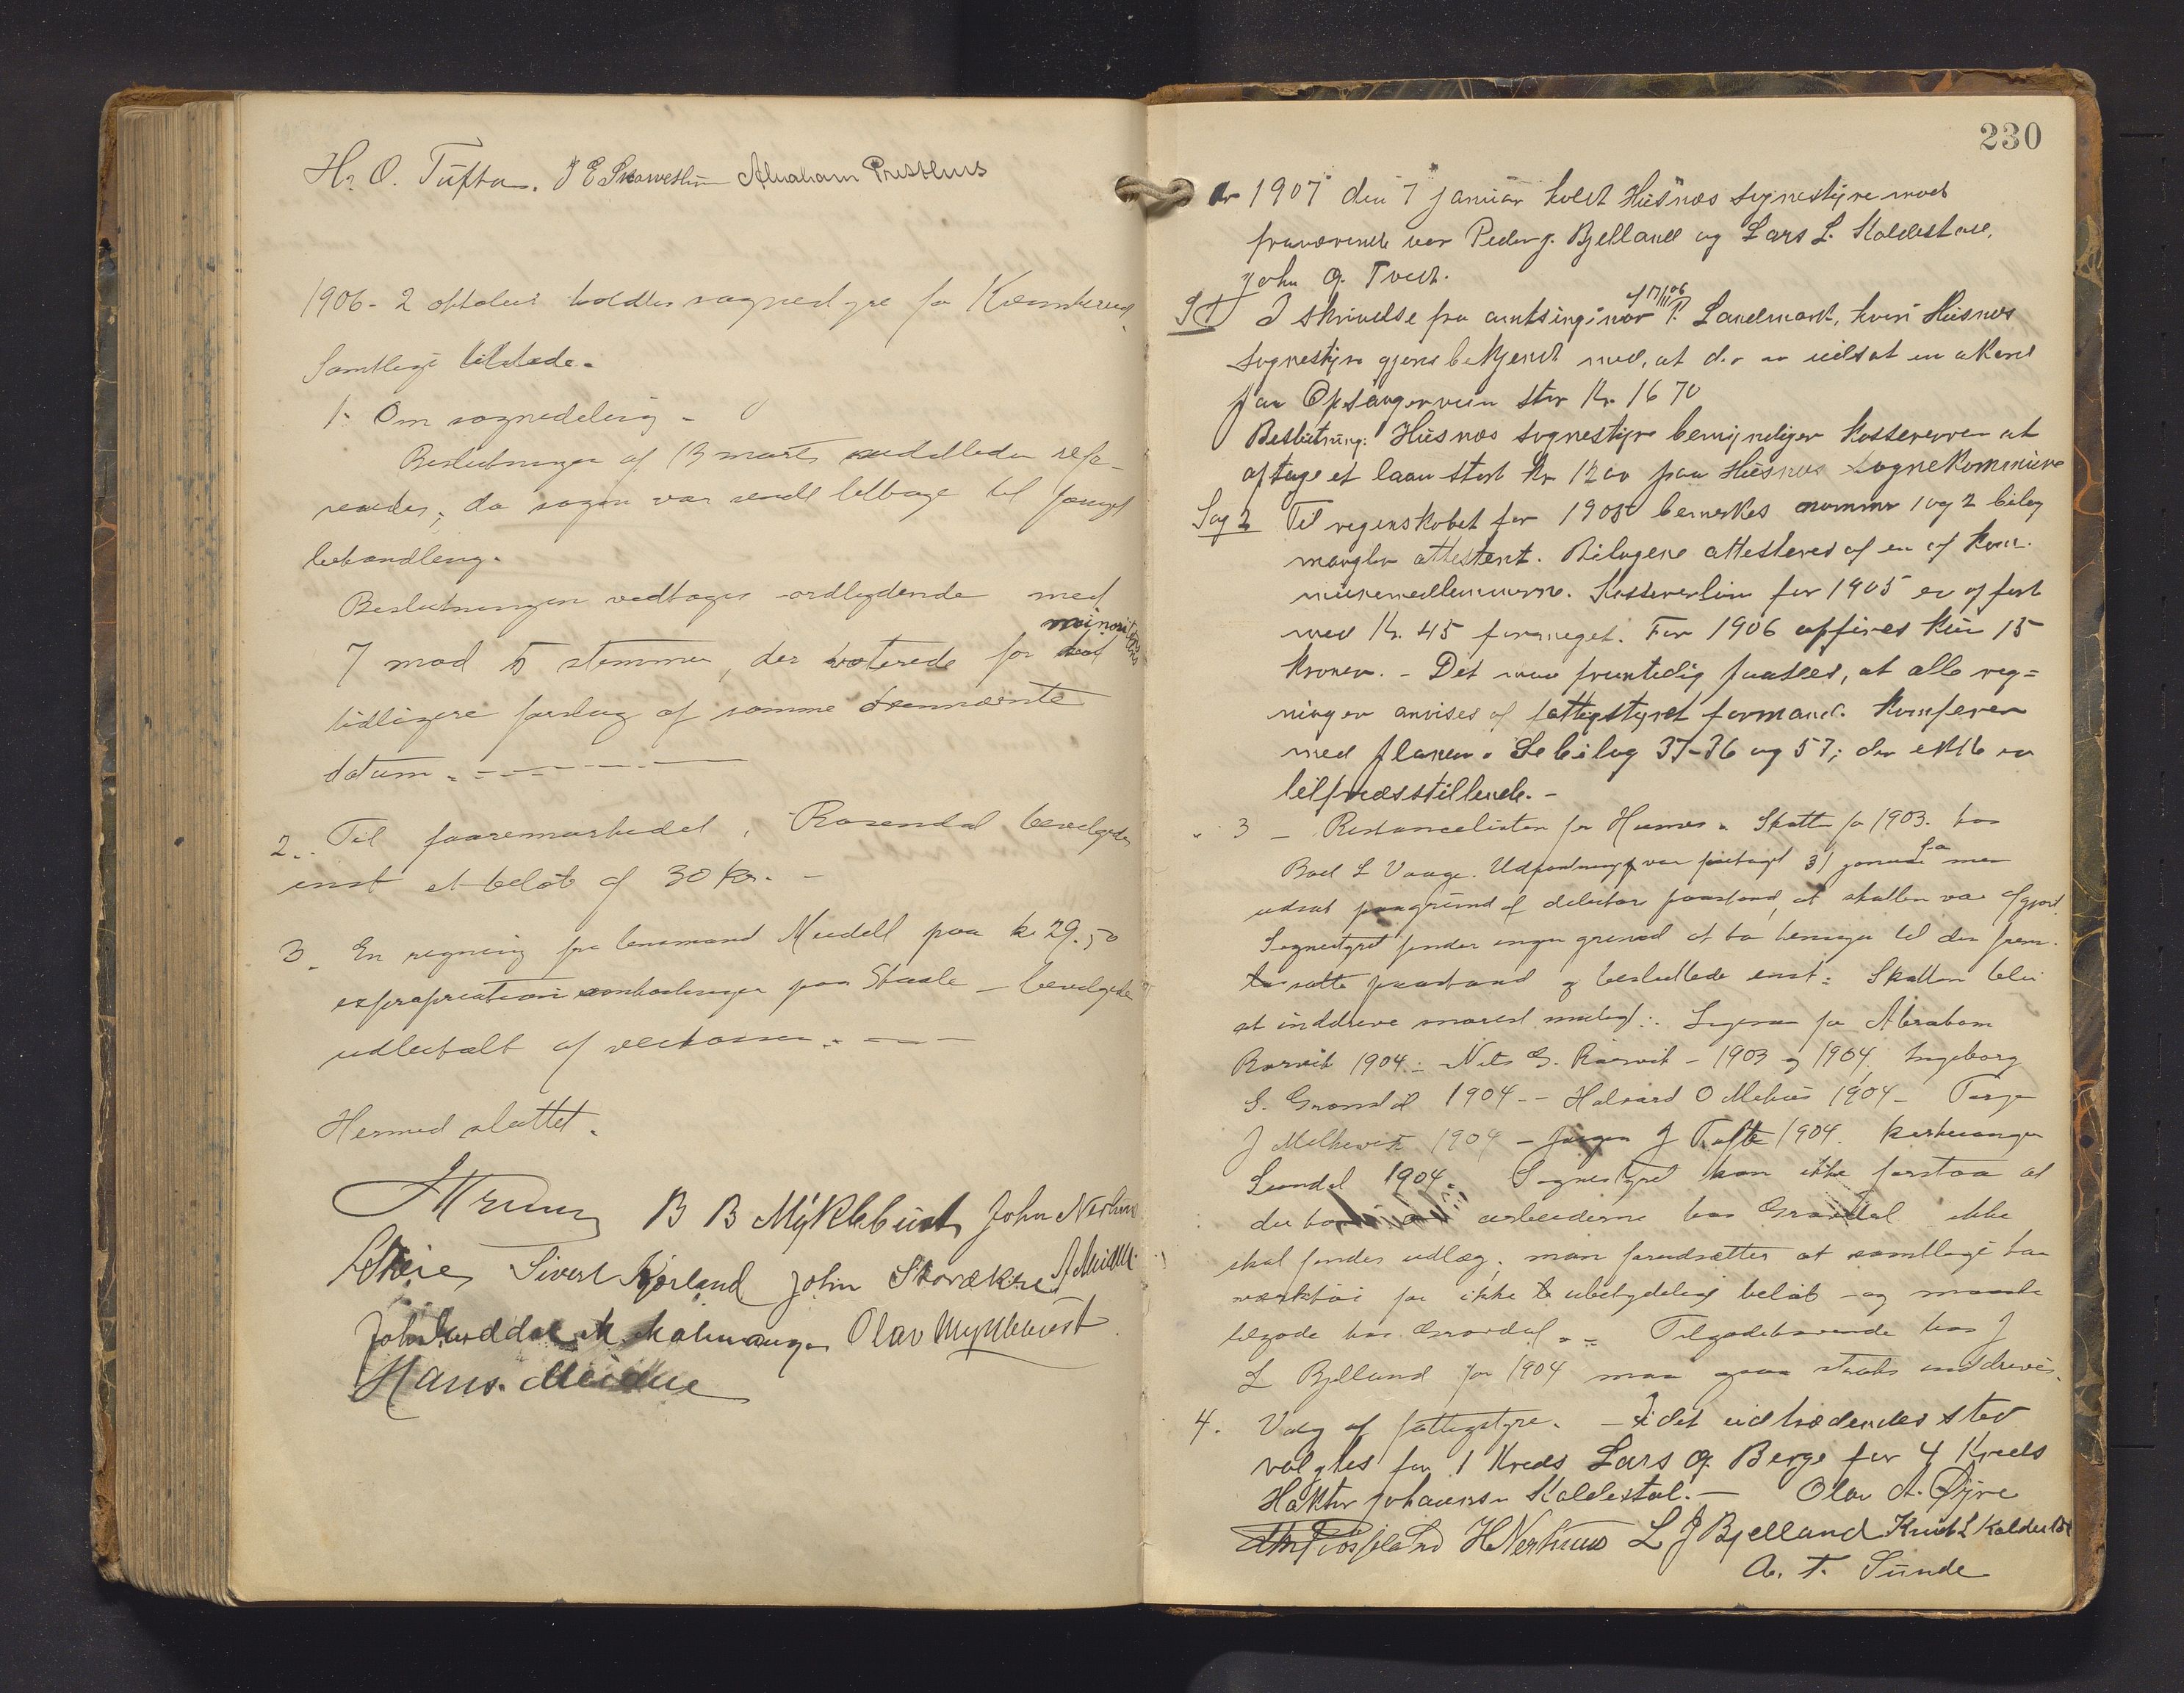 H. O. Tufta. J E Skarveslun Abraham Prestnus
1906 - 2 oktober holdtes sognestyre for Kvinherred
Samtlige tilstede.
1. Om sognedeling -
Beslutningen af 13 marts refe-
reredes; da sagen var sendt tilbage til fornyet
behandling.
Beslutningen vedtoges ordlydende med
7 mod 5 stemmer, der voterede for minoritetens
tidligere forslag af samme
datum. - - - -
2. Til faaremarkedet i Rosendal bevilgedes
enst et beløb af 30 kr. -
3. En regning fra lensmand Meidell paa kr 29.50
expropriations omkostninger paa - bevilgedes
udbetalt af veikassen. - - -
Hermed sluttet.
B B Myklebust John Nerhus
Skeie Sivert Kjerland John A Meidell
John Guddal M. Malmanger Olav Myklebust
Hans Meidell
230
År 1907 den 7 januar holdt Husnæs sognestyre møde
fraværende var Peder J. Bjelland og Lars L. Kaldestad,
John O. Tveit.
S 1 I skrivelse fra amtsingeniør P. Landmark, af 17/11 06 hvori Husnæs
sognestyre gjøres bekjendt med, at der er udsat en akord
paa Opsangerveien stor Kr. 1670
Beslutning: Husnæs sognestyre bemyndiger kassereren at
optage et laan stort Kr 1200 paa Husnæs sognekommune
Sag 2 Til regnskabet for 1905 bemerkes nummer 1 og 2 bilag
mangler attestert. Bilagene attesteres af en af kom-
munemedlemmerne. Kassererløn for 1905 er opført
med Kr. 45 formeget. For 1906 opføres kun 15
kroner. - Det maa fremtidig paasees, at alle reg=
ninger anvises af fattigstyret formand. Konferer
med planen. Se bilag 37-36 og 57; der ikke er
tilfredsstillende. -
" 3 - Restancelisten for Husnæs. Skatte for 1903. hos
Boel L Vaage. Udpantning var foretaget 31 januar men
udsat paagrund af debitors paastand, at skatten var afgjort.
Sognestyret finder ingen grund at ta hensyn til den frem-
satte paastand og besluttede enst: Skatten blir
at inddrive snarest muligt. Ligesaa for Abraham
Røsvik 1904. - Nils G. Røsvik - 1903 og 1904. Ingeborg
S. Grøndal 1904 - - Halvard O Mehus 1904 -
J Melkevik 1904 - Jørgen J Tufte 1904.
Sundal 1904. Sognestyret kan ikke forstaa at
der hos arbeiderne hos ikke
skal findes udlæg, man forudsætter at samtlige har
værktøi for ikke ubetydelig beløb - og maaske
tilgode hos . - Tilgodehavende hos J
L Bjelland for 1904 maa ogsaa straks inddrives.
4. Valg af fattigstyre. - I det udtrædendes sted
valgtes for 1 Kreds Lars O. Berge for 4 Kreds
Haktor Johannesen Kaldestad. - Olav A. Øyre
H Nerhuus L J Bjelland Knut L Kaldestad
A. T. Sunde